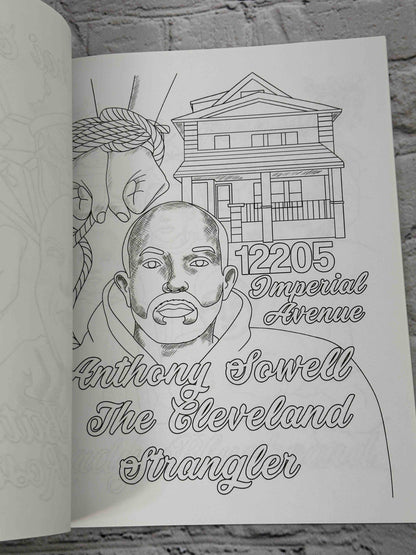 12205
Imperial
Avenue
Anthony Sowell
The Cleveland
Strangler